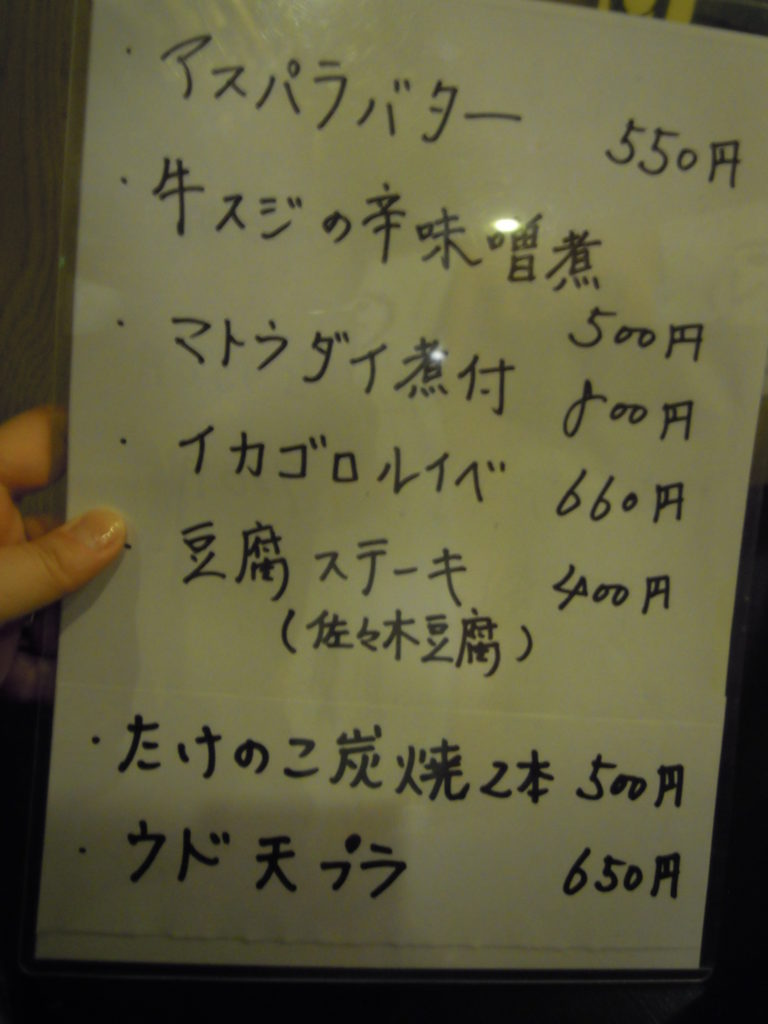 ・アスパラバター 550円
・牛スジの辛味噌煮 500円
・マトウダイ煮付 800円
・イカゴロルイベ 660円
・豆腐ステーキ 400円
(佐々木豆腐)
・たけのこ炭焼2本 500円
・ウド天プラ 650円